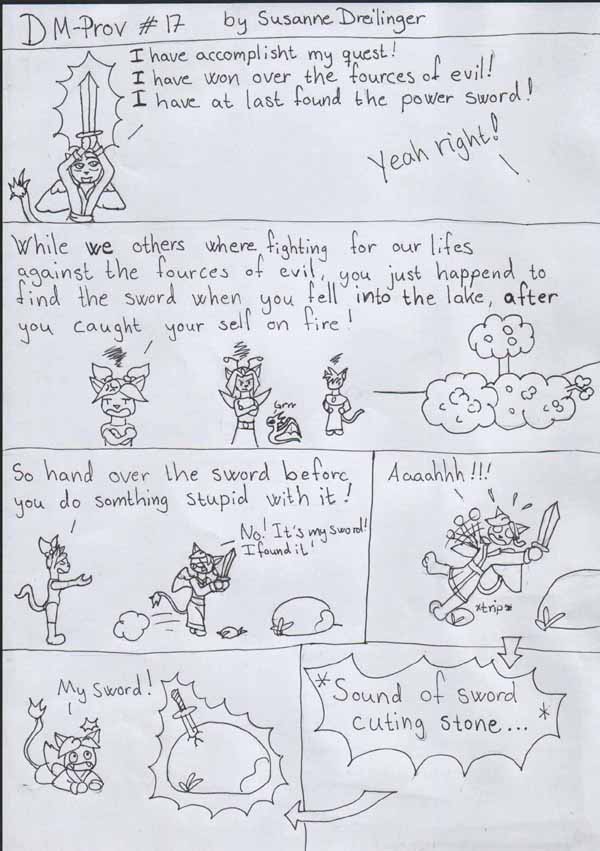 DM-Prov # 17 by Susanne Dreilinger
I have accomplisht my quest!
I have won over the fources of evil!
I have at last found the power sword!
Yeah right!
While we others where fighting for our lifes
against the fources of evil, you just happend to
find the sword when you fell into the lake, after
you caught your self on fire!
Grrr
So hand over the sword before
you do somthing stupid with it!
No! It's my sword!
I found it!
Aaaahhh!!!
*trip*
*Sound of sword
cuting stone... *
My sword!